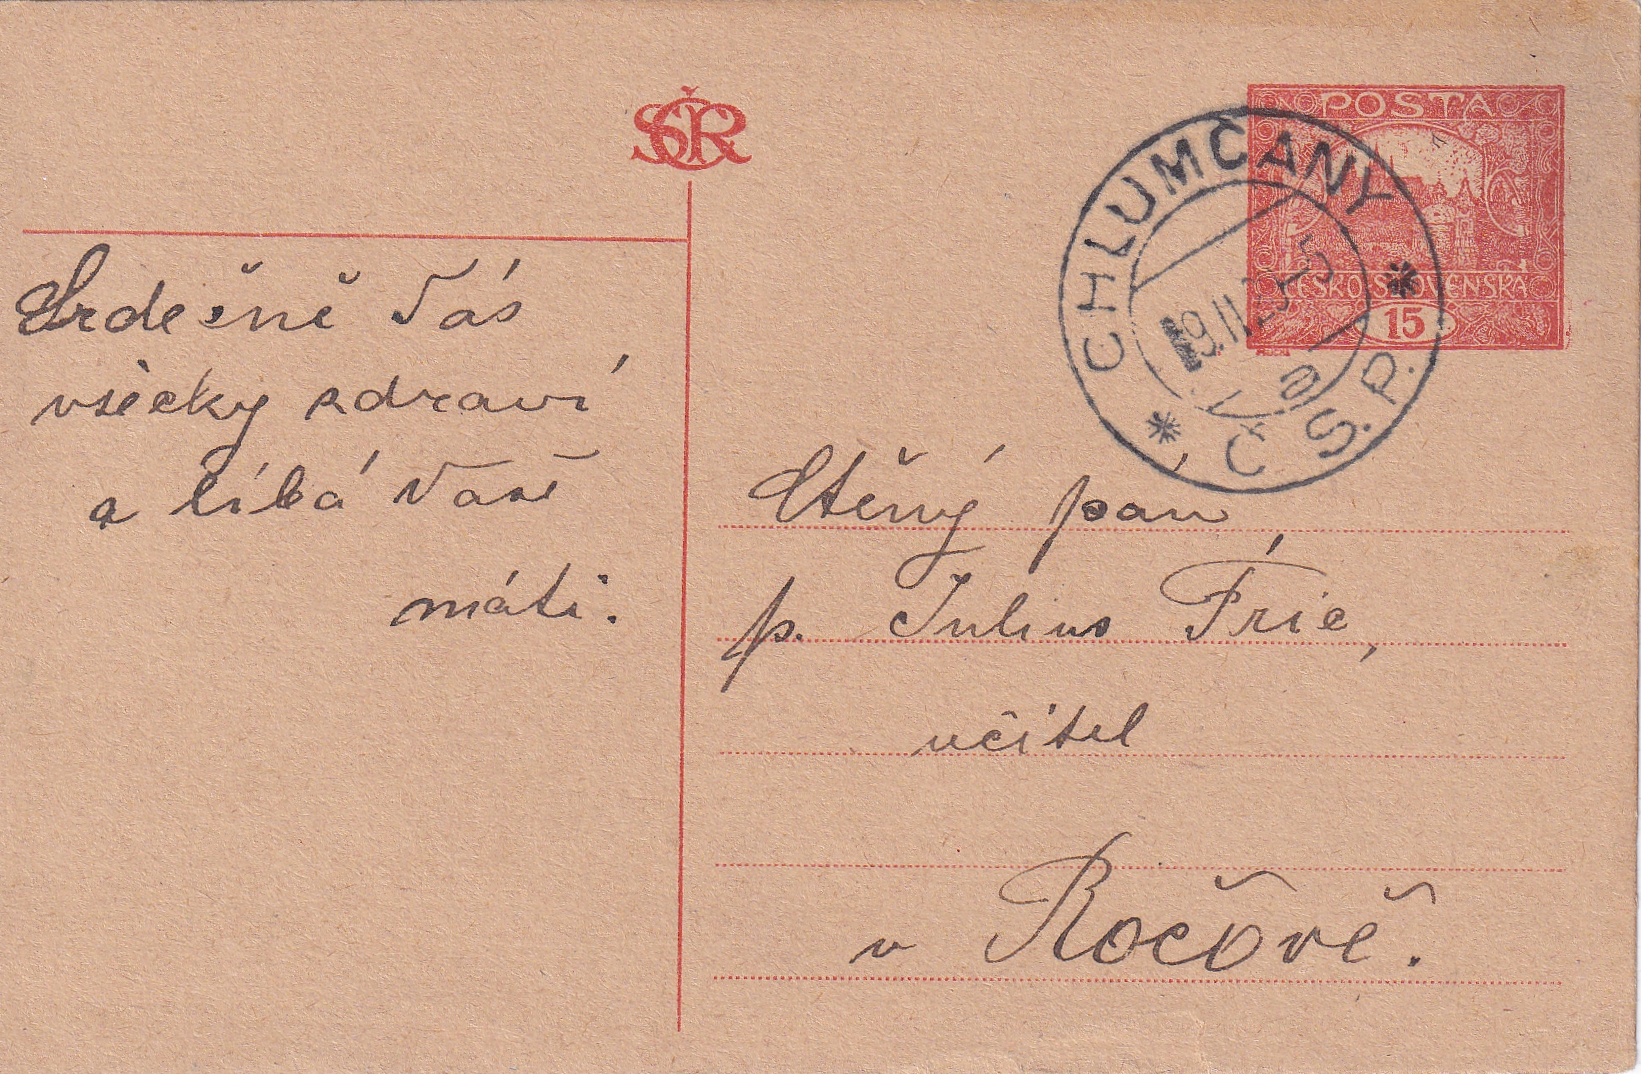 SČR
POSTA
ČESKOSLOVENSKÁ
15
CHLUMČANY
Č.S.P.
a
Srdečně Vás
všecky zdraví
a líbá Vaše
máti.
Ctěný pan
p. Julius Frič,
učitel
v Ročově.